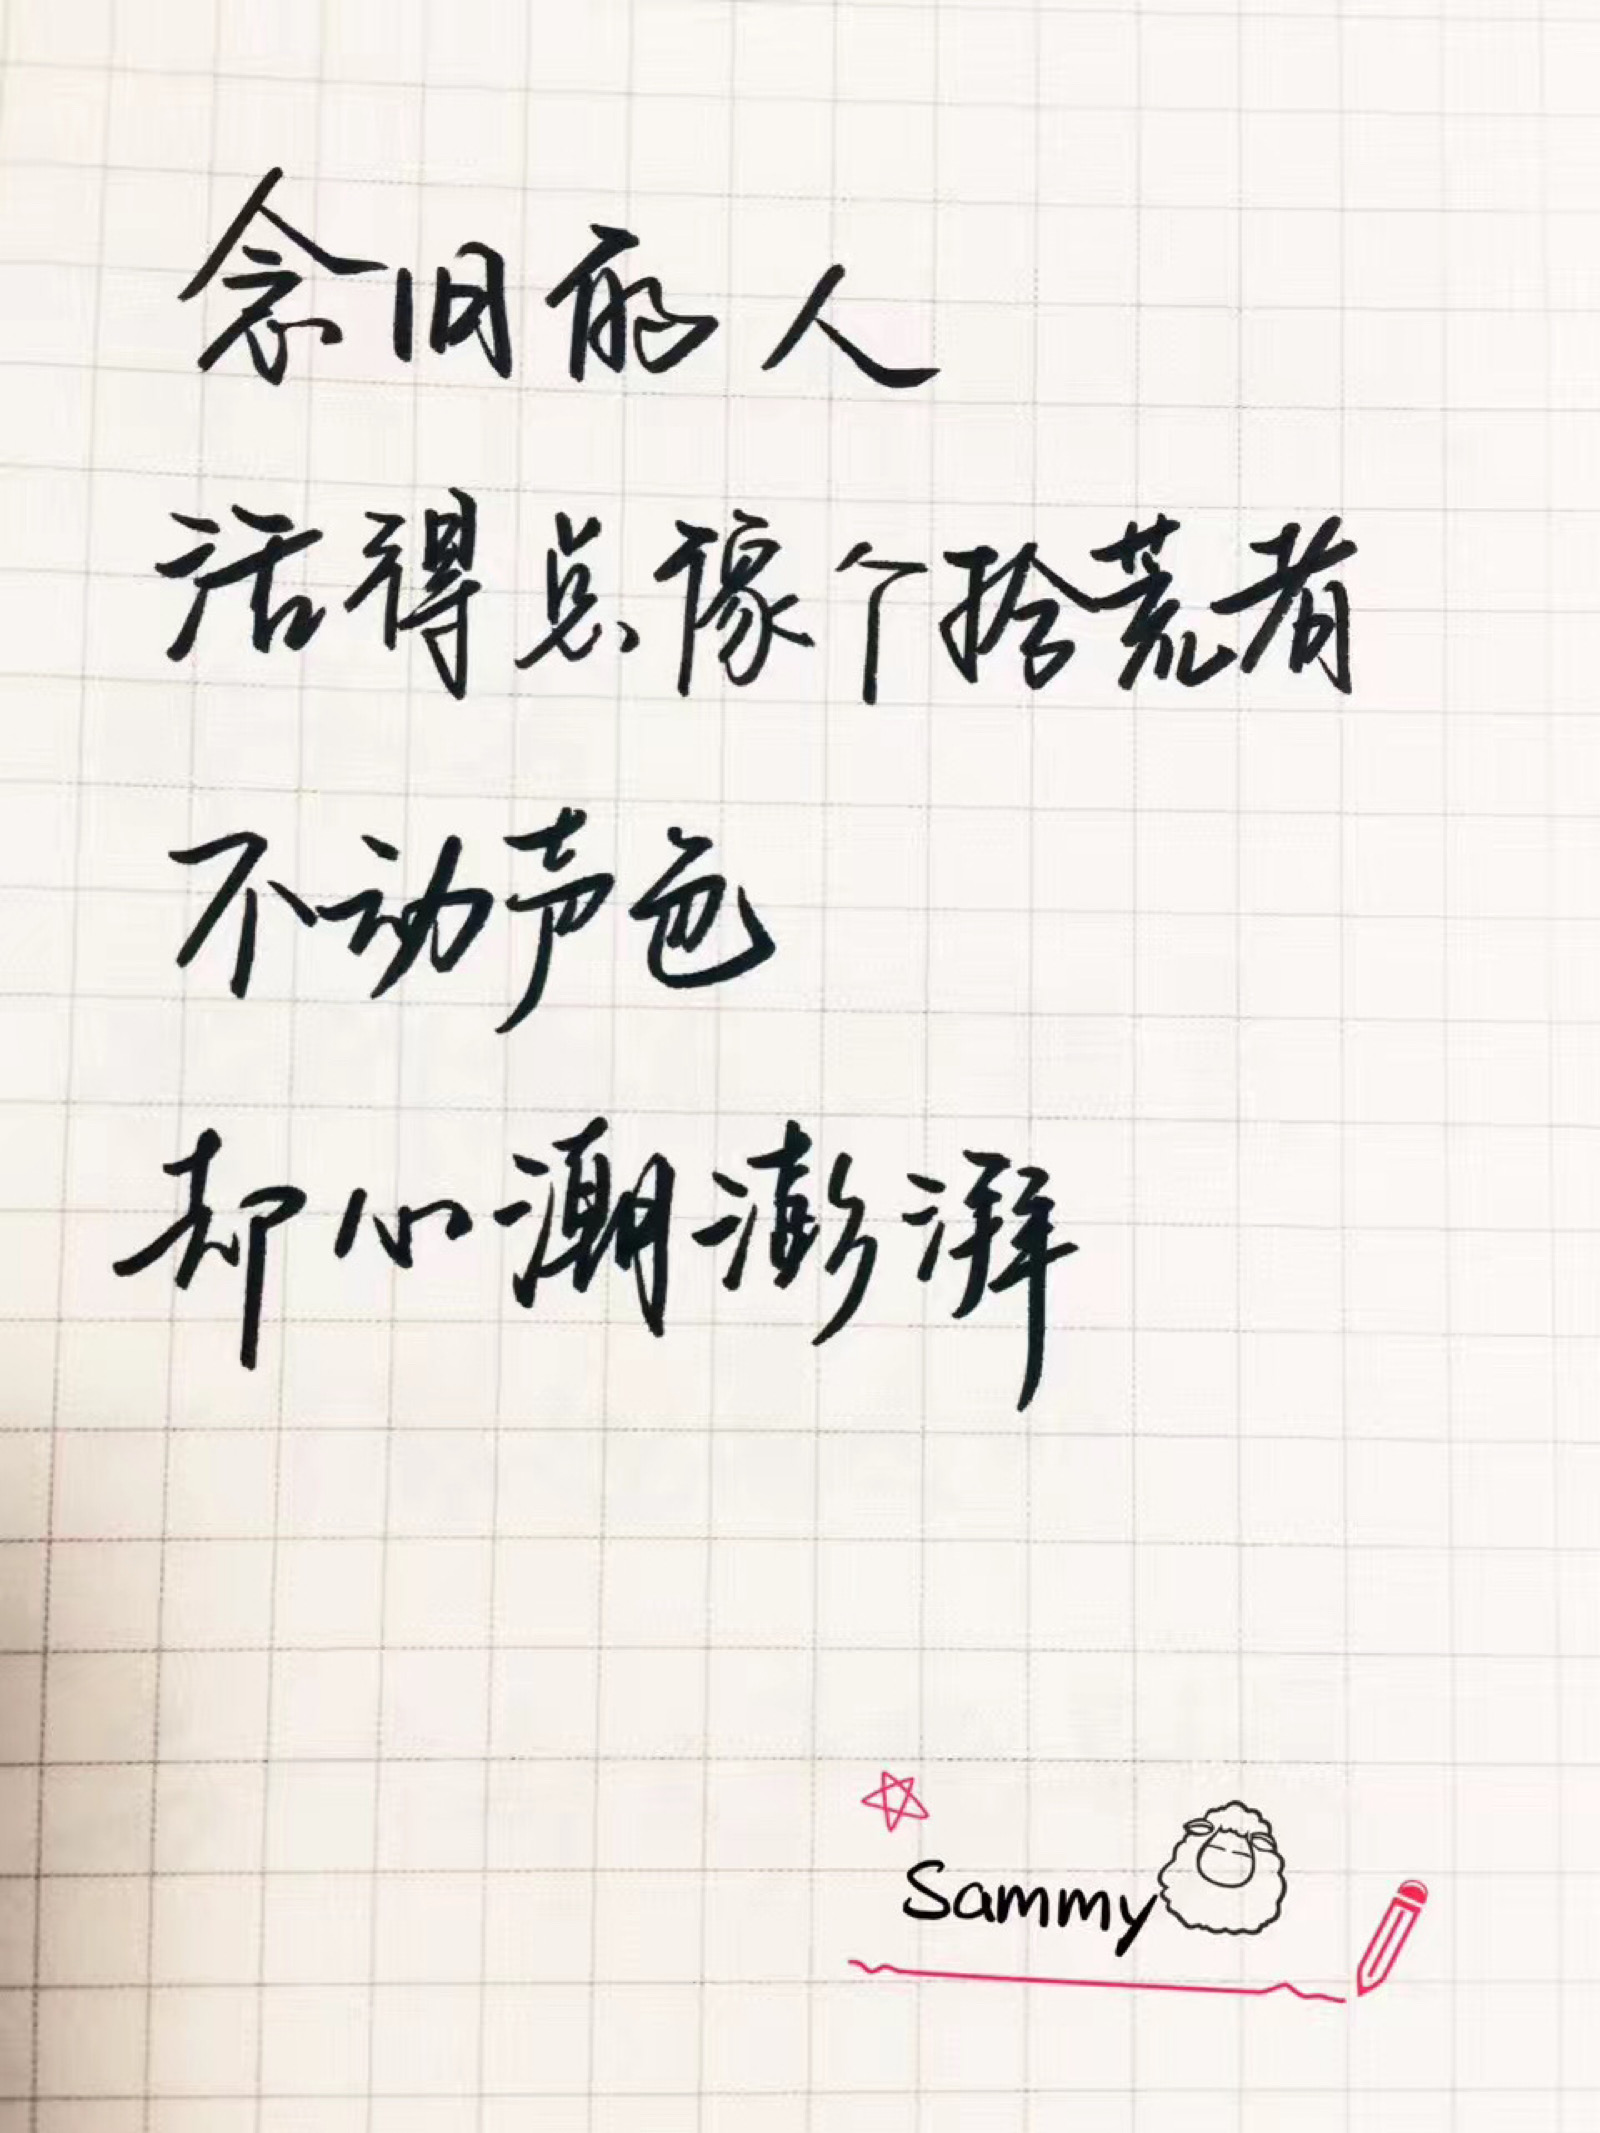 念旧的人
活得总像个拾荒者
不动声色
却心潮澎湃
Sammy